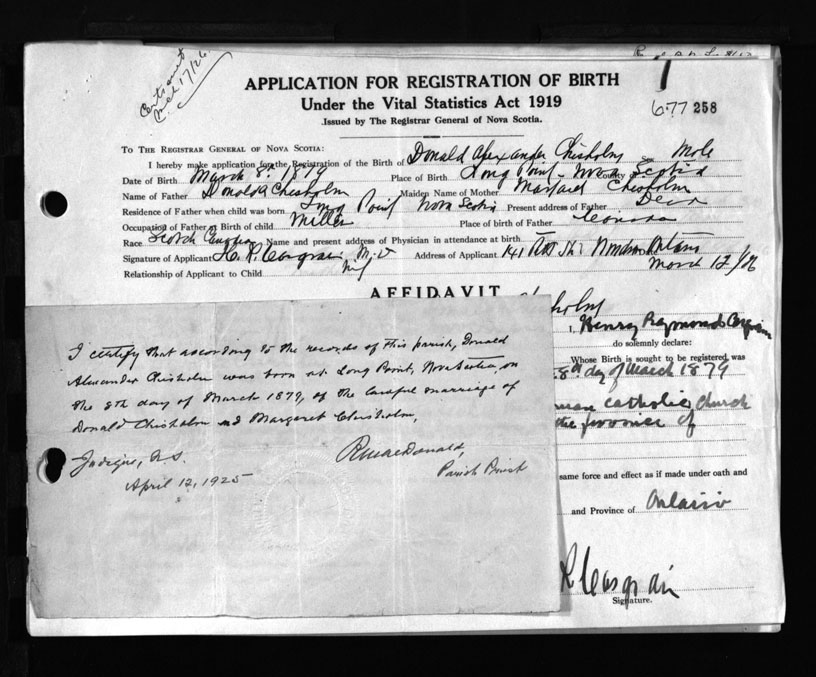 Mch 17/26
APPLICATION FOR REGISTRATION OF BIRTH
Under the Vital Statistics Act 1919
Issued by The Registrar General of Nova Scotia.
677 258
TO THE REGISTRAR GENERAL OF NOVA SCOTIA:
I hereby make application for the Registration of the Birth of Donald Alexander Chisholm Sex Male
Date of Birth March 8, 1879 Place of Birth Long Point - Nova Scotia County of
Name of Father Donald Chisholm Maiden Name of Mother Margaret Chisholm
Residence of Father when child was born Long Point Nova Scotia Present address of Father Dead
Occupation of Father at Birth of child Miller Place of birth of Father Canada
Race Scotch Canadian Name and present address of Physician in attendance at birth
Signature of Applicant H. R. Casgrain M.D. Address of Applicant 141 Windsor Ontario
Relationship of Applicant to Child Nil March 12/26
AFFIDAVIT
Chisholm
I, Henry Raymond Casgrain
do solemnly declare:
Whose Birth is sought to be registered, was
8th day of March 1879
Roman Catholic Church
the province of
same force and effect as if made under oath and
and Province of Ontario
R Casgrain
Signature.
I certify that according to the records of this parish, Donald
Alexander Chisholm was born at Long Point, Nova Scotia, on
the 8th day of March 1879, of the lawful marriage of
Donald Chisholm and Margaret Chisholm,
Judique, N.S. R MacDonald,
April 12, 1925 Parish Priest